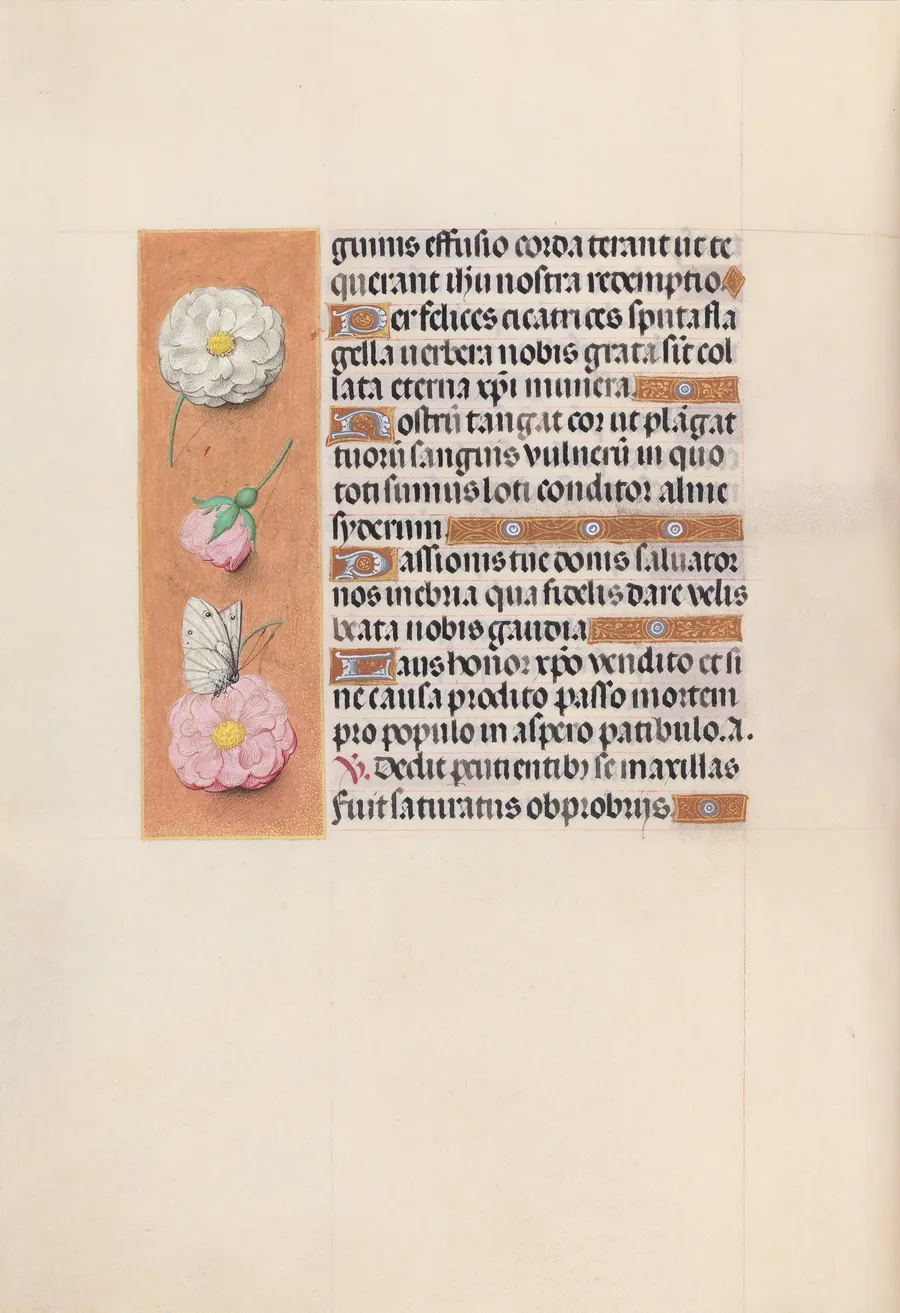 guinis effusio corda terant ut te
querant ihu nostra redemptio.
Per felices cicatrices sputa fla
gella verbera nobis grata sīt col
lata eterna xpi munera.
Nostrū tangat cor ut plāgat
tuorū sanguis vulnerū in quo
toti sumus loti conditor alme
syderum.
Passionis tue donis saluator
nos inebria qua fidelis dare velis
beata nobis gaudia
Laus honor xpo vendito et si
ne causa prodito passo mortem
pro populo in aspero patibulo. A.
V. Dedit percutientibꝫ se maxillas
Fuit saturatus obprobriis.